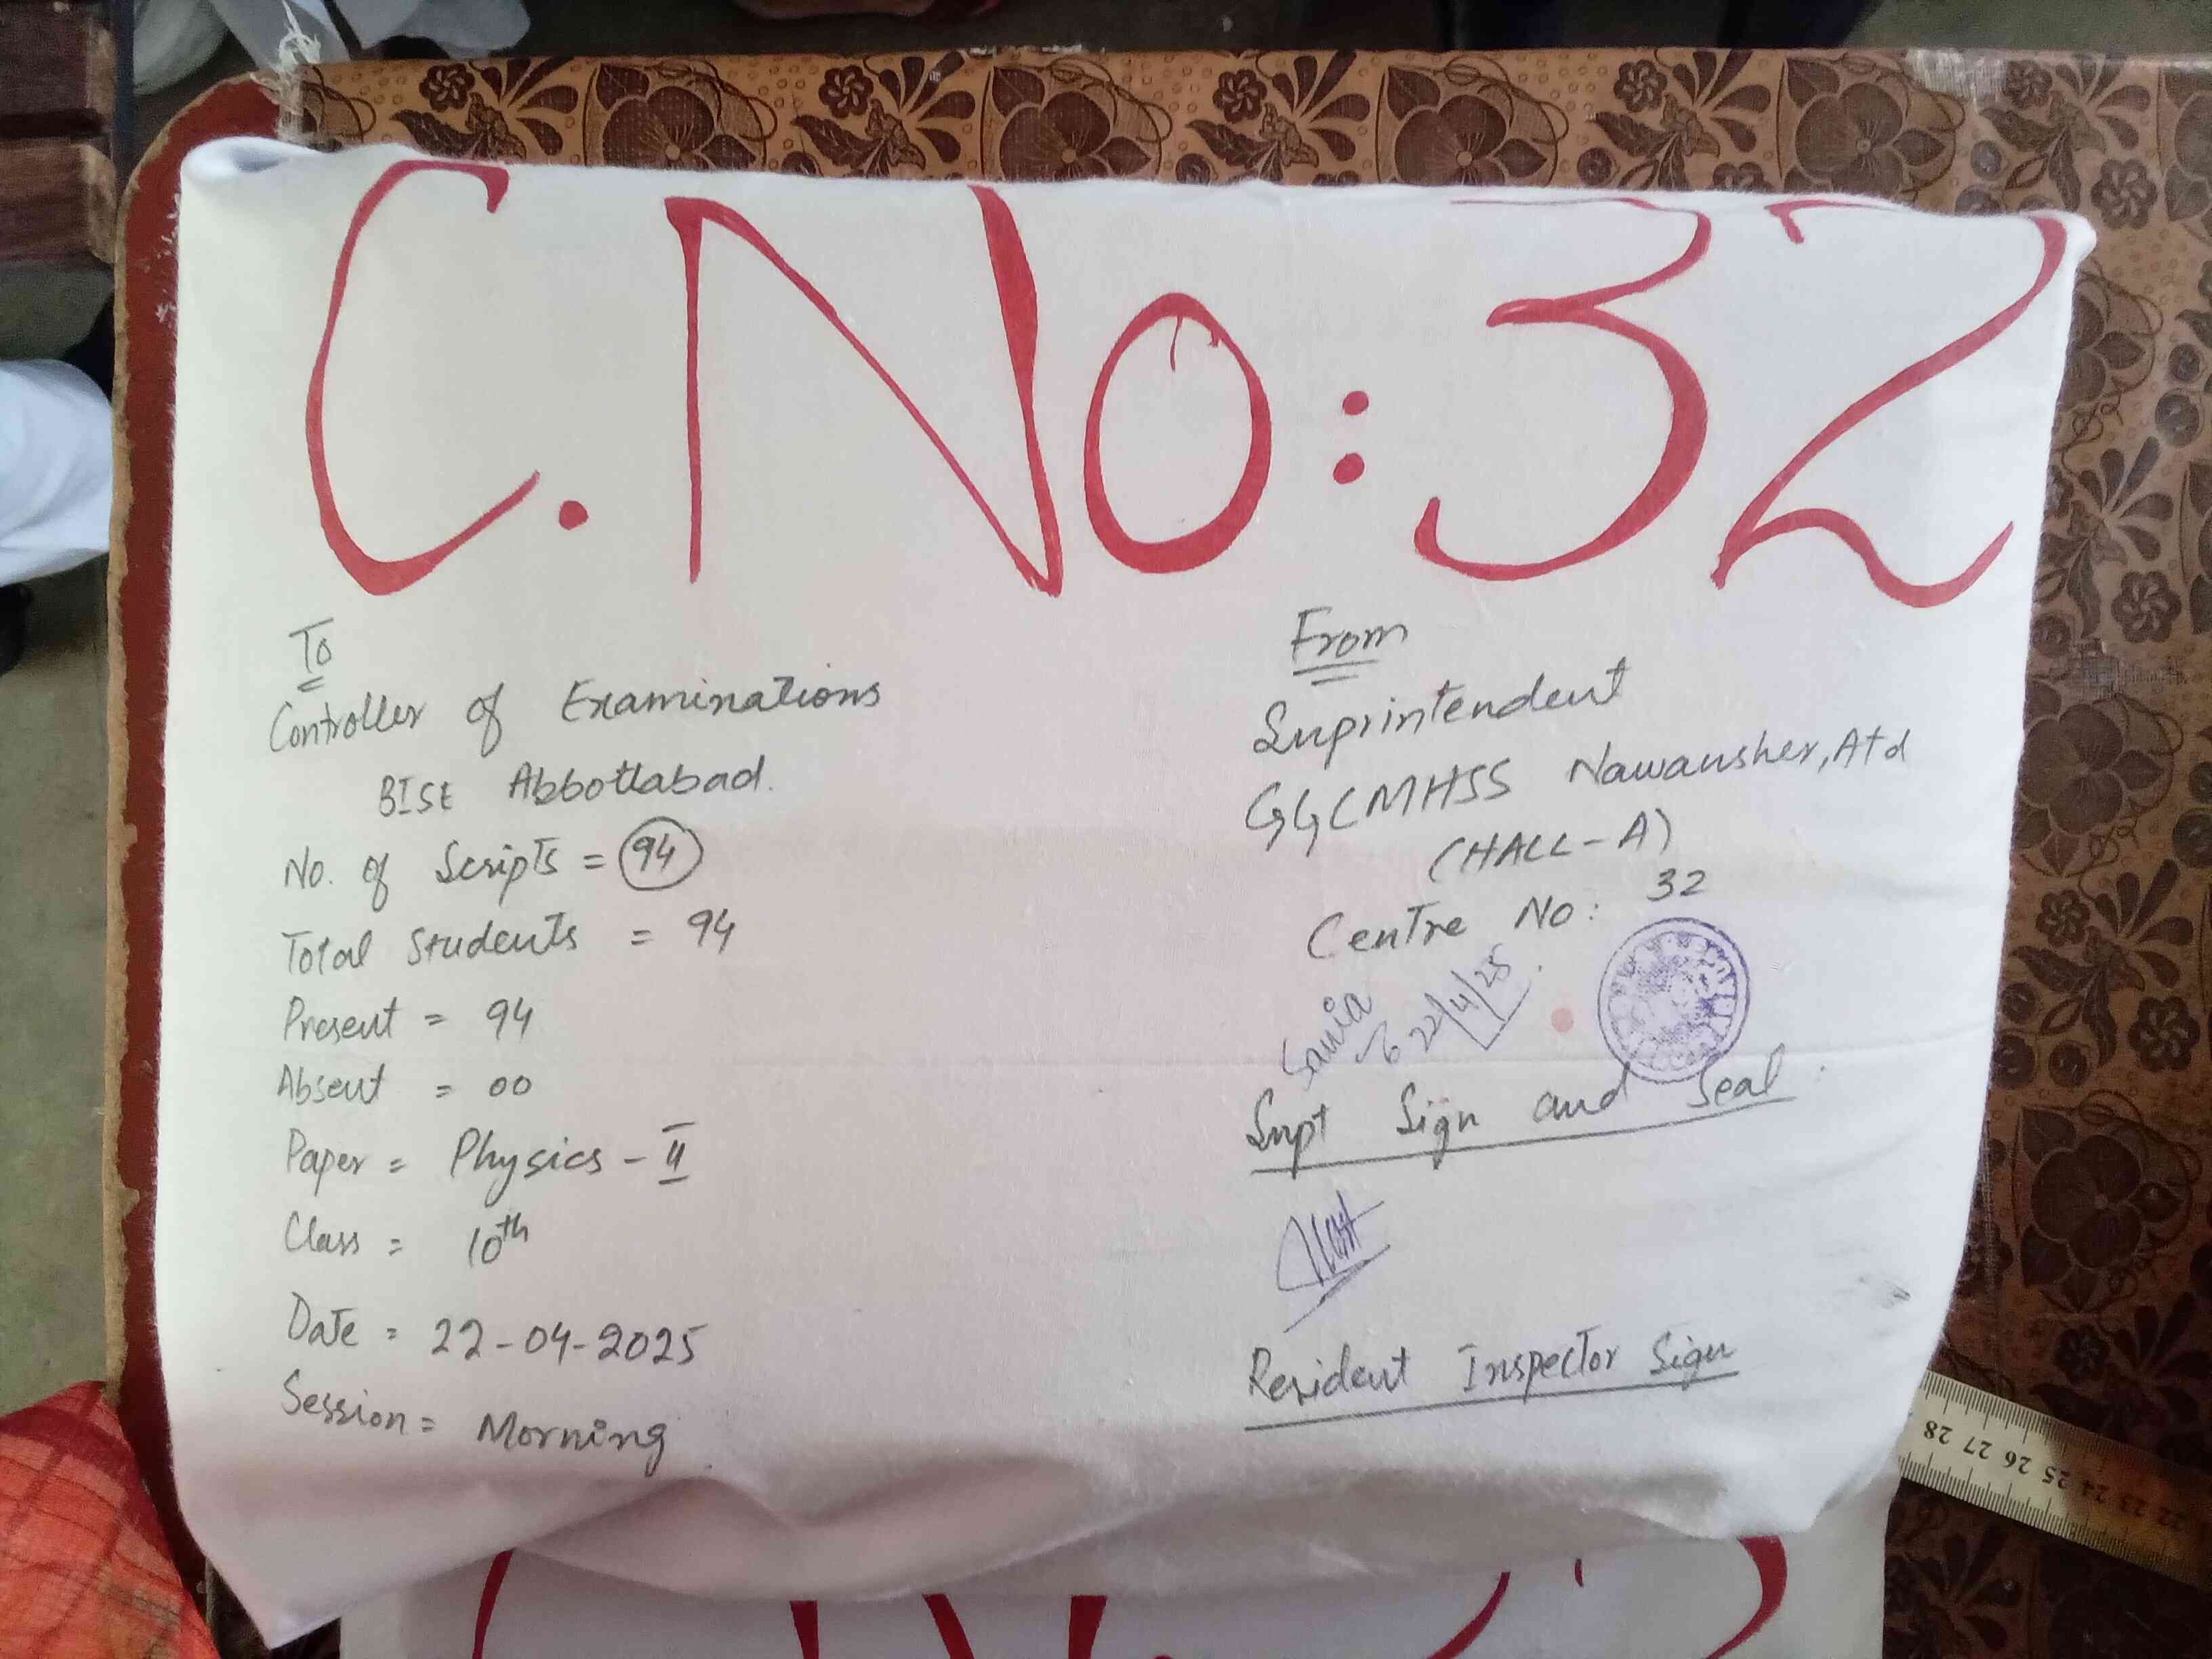 C.No:32
To
Controller of Examinations
BISE Abbottabad.
No. of Scripts = 94
Total Students = 94
Present = 94
Absent = 00
Paper = Physics - II
Class = 10th
Date = 22-04-2025
Session = Morning
From
Suprintendent
GGCMHSS Nawansher, Atd
(HALL-A)
Centre No: 32
Sania
22/4/25
Supt Sign and Seal
Resident Inspector Sign
28 27 26 25 24 23 22